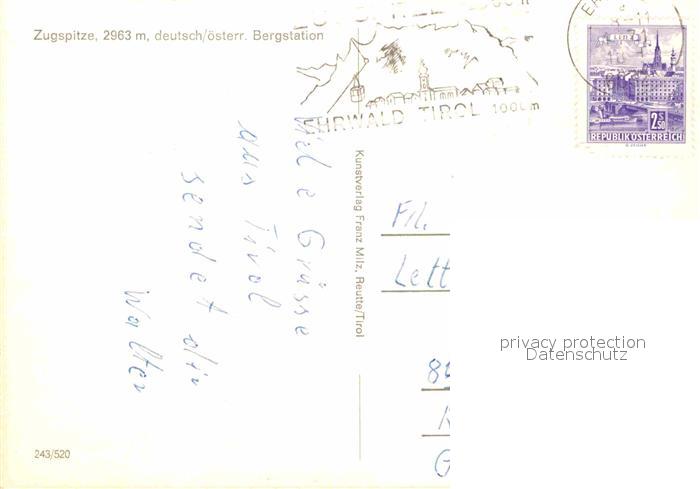 Zugspitze, 2963 m, deutsch/österr. Bergstation
EHRWALD TIROL 1000m
LINZ
2 S 50
REPUBLIK ÖSTERREICH
Viele Grüsse
aus Tirol
sendet dir
Walter
Kunstverlag Franz Milz, Reutte/Tirol
Frl.
Lett
privacy protection
Datenschutz
243/520